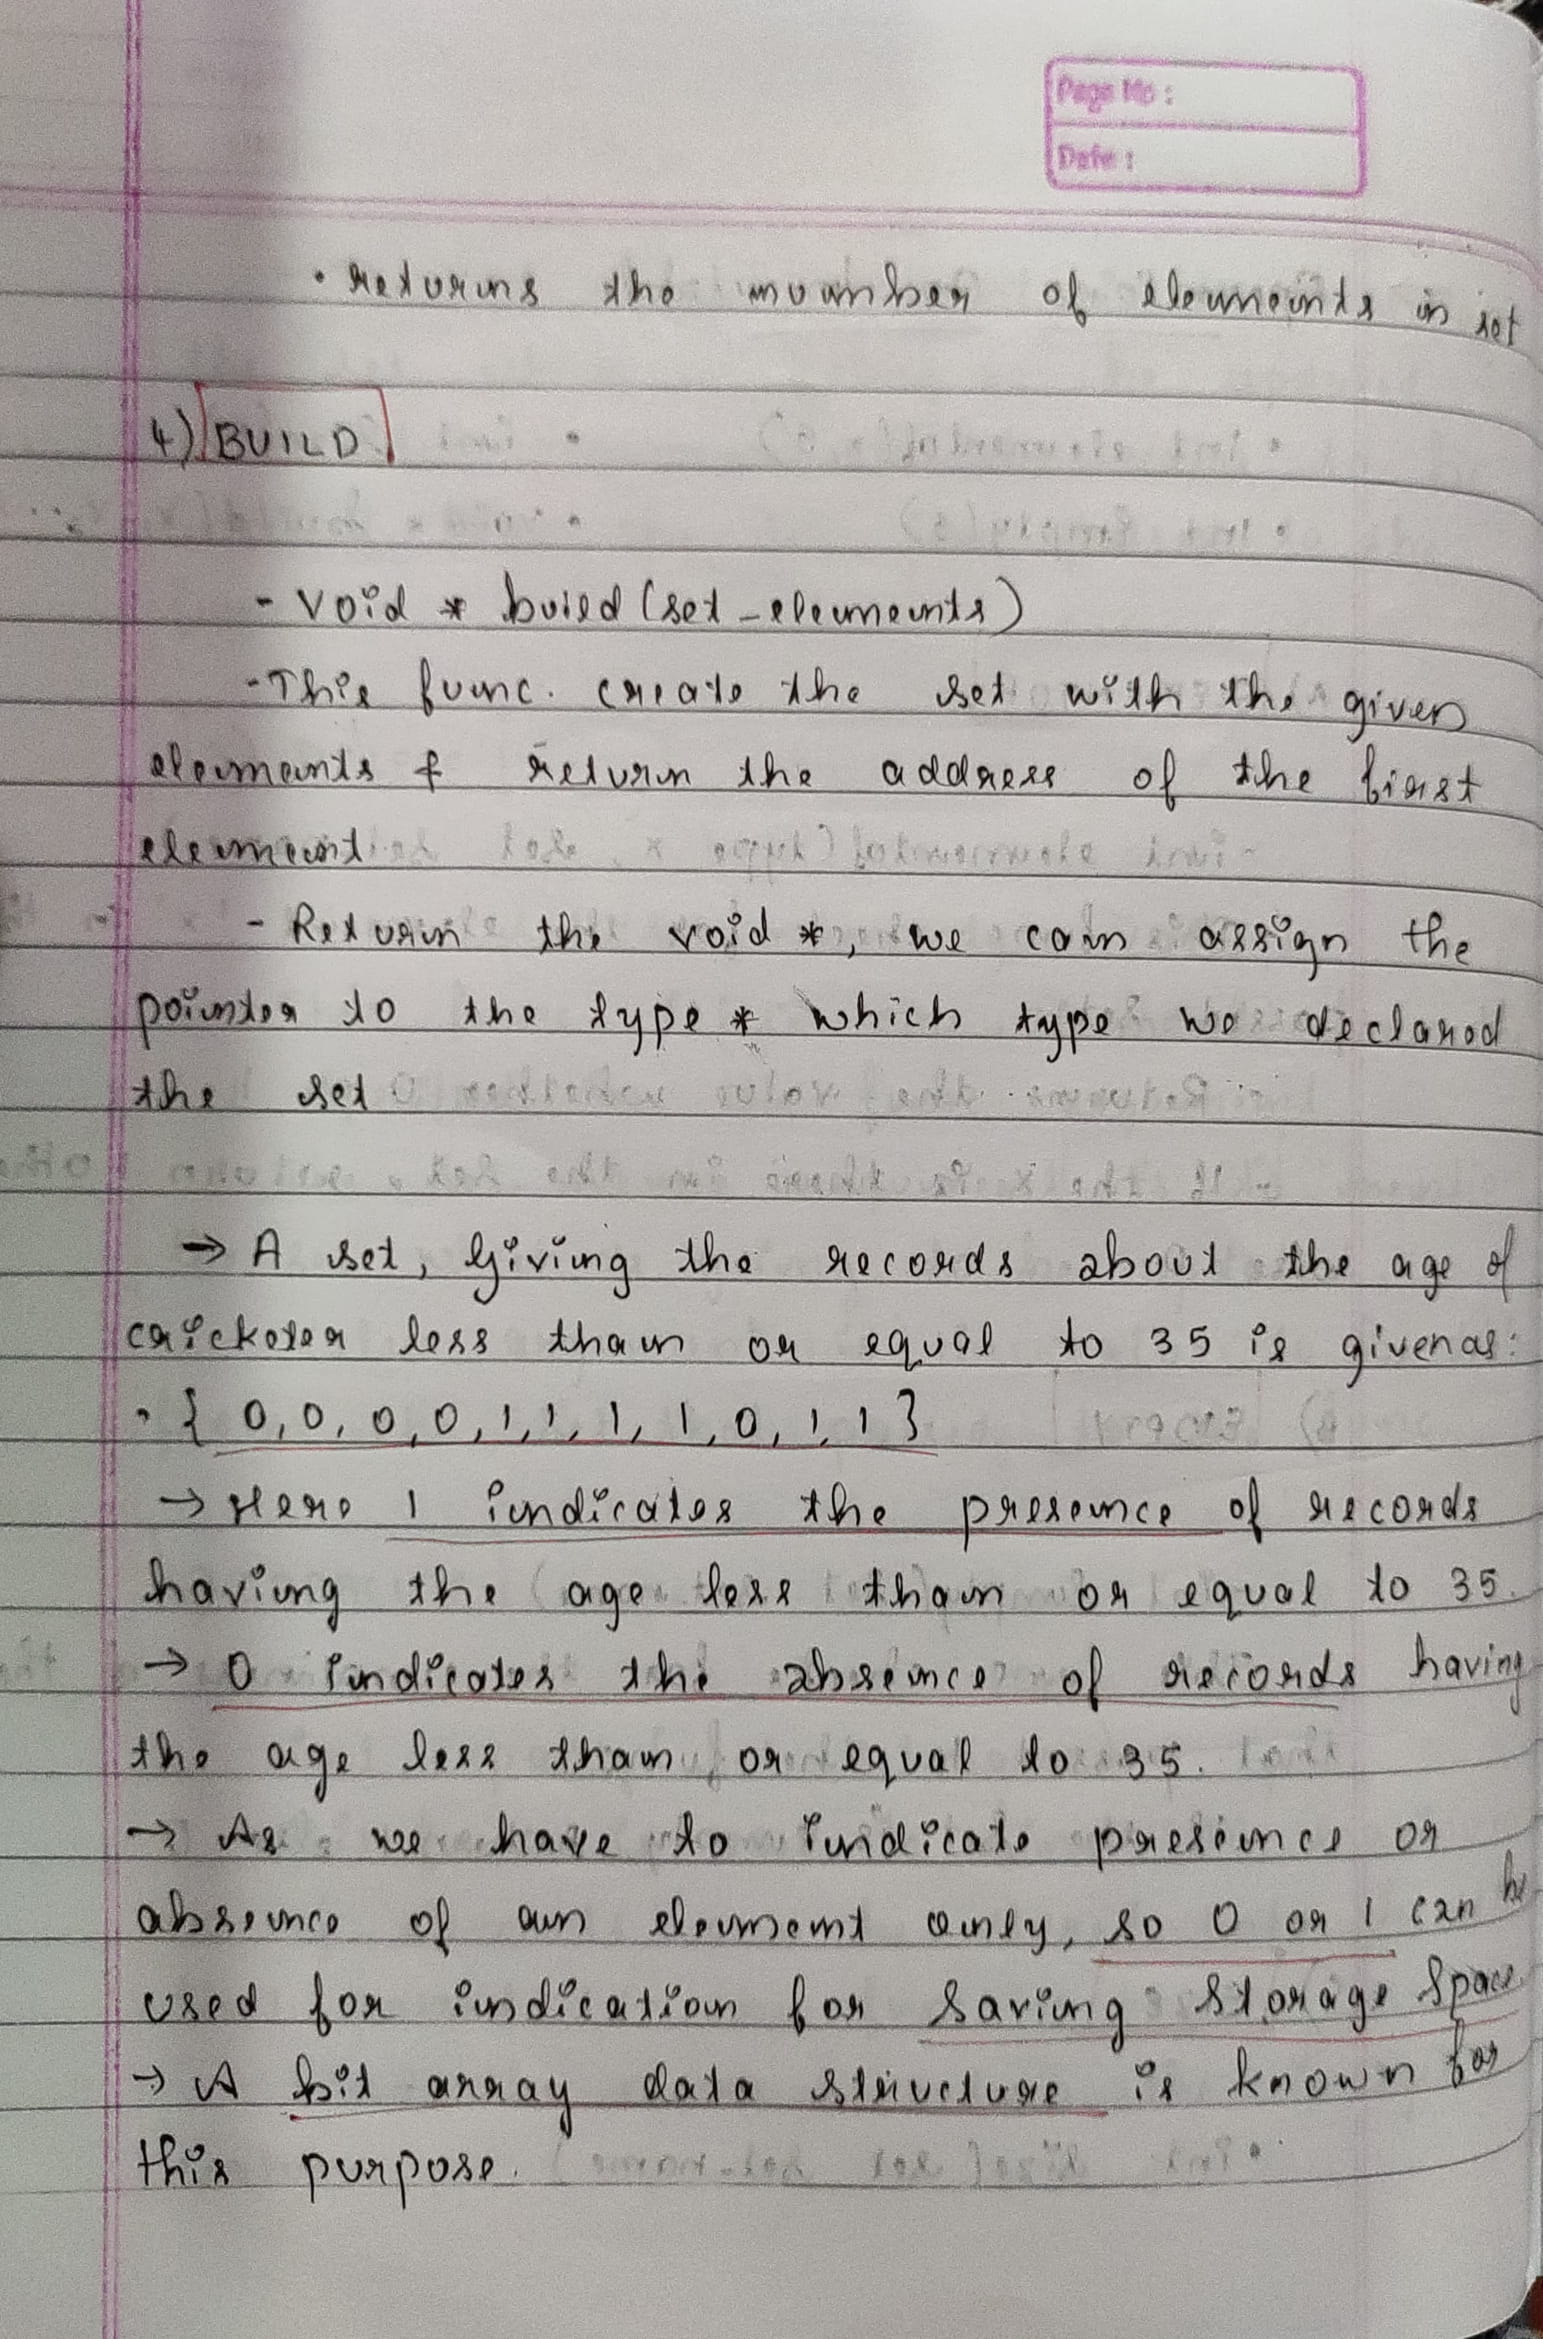 Page No :
Date :
• returns the number of elements in set
4) BUILD
- Void * build (set - elements)
- This func. create the set with the given
elements & return the address of the first
element
- Return the void *, we can assign the
pointer to the type * which type we declared
the set
→ A set, giving the records about the age of
cricketer less than or equal to 35 is given as:
• { 0, 0, 0, 0, 1, 1, 1, 1, 0, 1, 1 }
→ Here 1 indicates the presence of records
having the age less than or equal to 35.
→ 0 indicates the absence of records having
the age less than or equal to 35.
→ As we have to indicate presence or
absence of an element only, so 0 or 1 can be
used for indication for saving storage space
→ A bit array data structure is known for
this purpose.